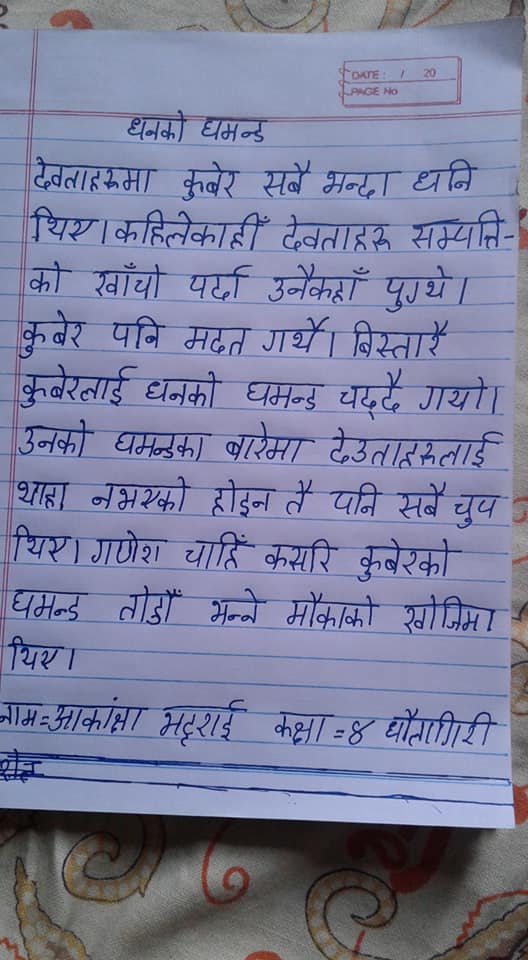 DATE: / 20
PAGE No
धनको घमन्ड
देवताहरूमा कुबेर सबै भन्दा धनि
थिए। कहिलेकाहीँ देवताहरू सम्पत्ति-
को खाँचो पर्दा उनैकहाँ पुग्थे।
कुबेर पनि मदत गर्थे। बिस्तारै
कुबेरलाई धनको घमन्ड चढ्दै गयो।
उनको घमन्डका बारेमा देउताहरूलाई
थाहा नभएको होइन तै पनि सबै चुप
थिए। गणेश चाहिँ कसरि कुबेरको
घमन्ड तोडौँ भन्ने मौकाको खोजिमा
थिए।
नाम=आकांक्षा भट्टराई कक्षा=४ धौलागिरी